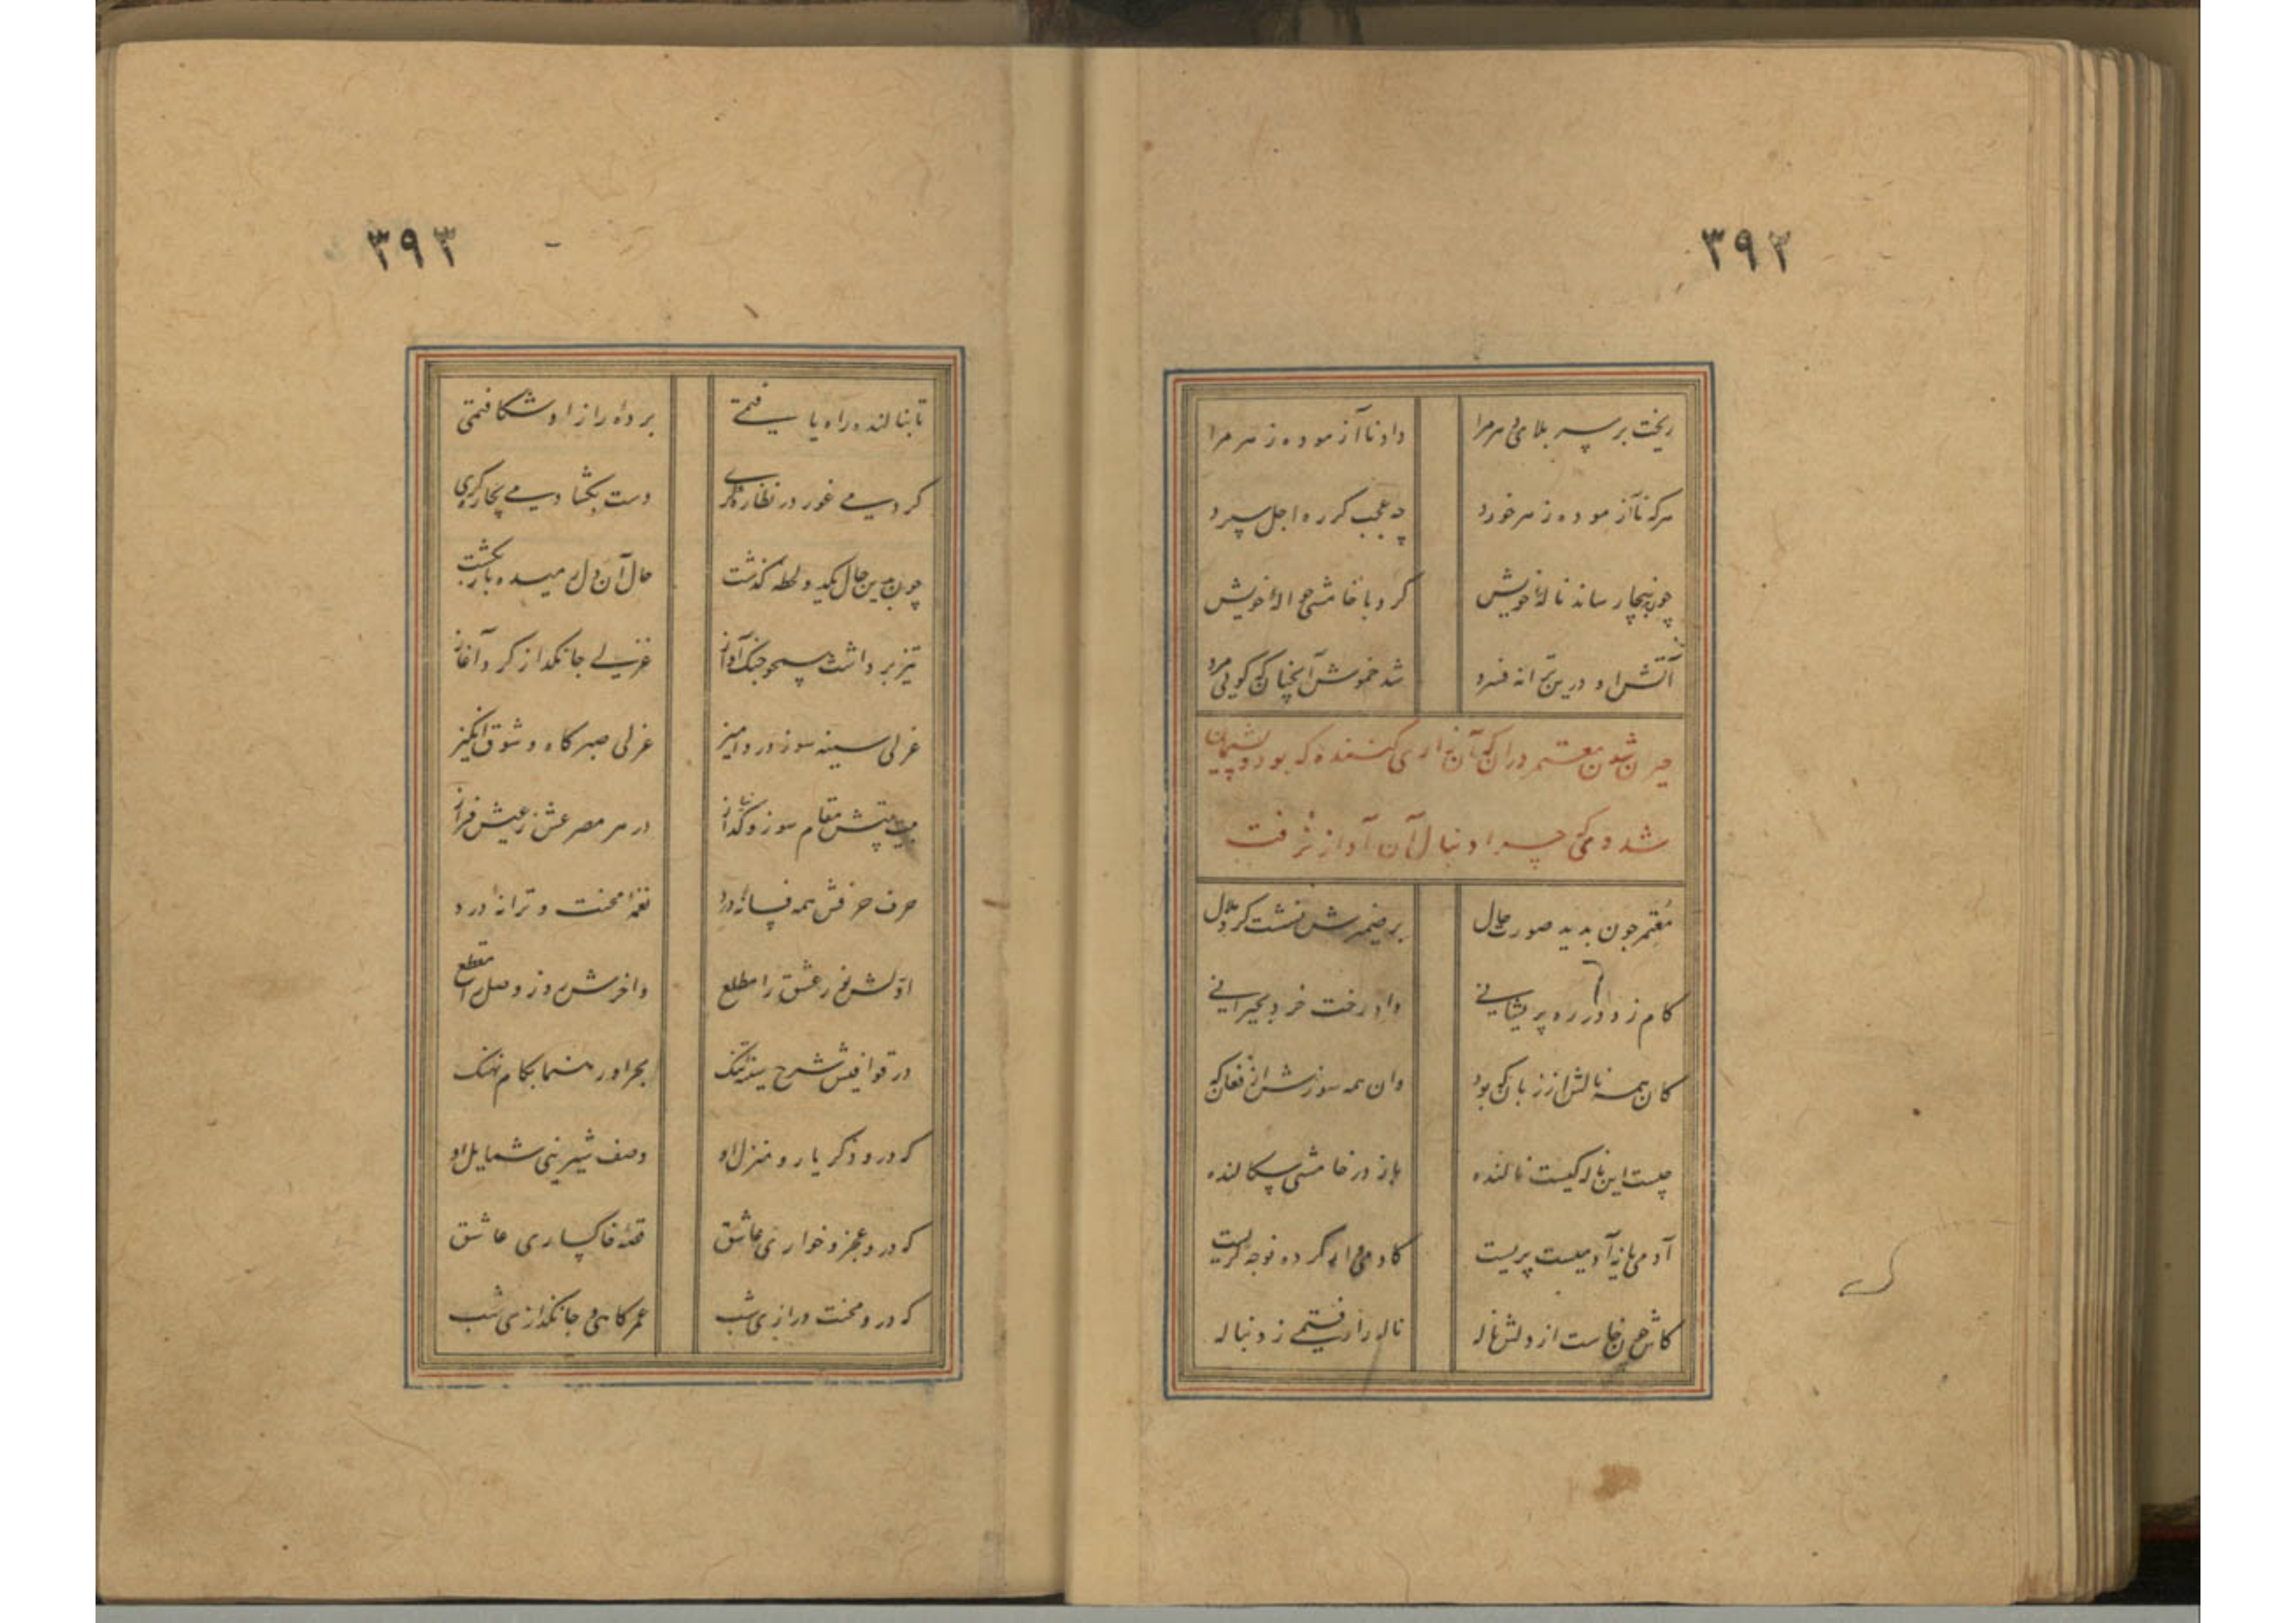 ٣٩٢
ریخت بر سر بلای دهر مرا داد ناآزموده زهر مرا
هرکه ناآزموده زهر خورد چه عجب گر ره اجل سپرد
چون بپنجا رساند نالهٔ خویش کرد با خامشی حوالهٔ خویش
آتش او درین ترانه فسرد شد خموش آنچنان که گویی مرد
حیران شدن معتمر دران که آن زاری کننده که بود و پشیمان
شدن وی که چرا دنبال آن آواز نرفت
معتمر چون بدید صورت حال بر ضمیرش نشست گرد ملال
گام زد در ره پریشانی داد رخت خرد بحیرانی
کان همه نالش از زبان که بود وان همه سوزش از فغان که
چیست این ناله کیست نالنده باز در خامشی سگالنده
آدمی یا نه آدمیست پریست کادمی‌وار کرده نوحه گریست
کاش چون خاست از دلش ناله ناله را رفتمی ز دنباله
٣٩٣
تا بنالنده راه یافتمی پرده راز او شکافتمی
کردمی غور در نظاره‌گری دست بگشادمی بچاره‌گری
چون بدین حال یکدو لحظه گذشت حال آن دل رمیده باز بگشت
تیز برداشت همچو چنگ آواز غزلی جانگداز کرد آغاز
غزلی سینه سوز دردآمیز غزلی صبرکاه و شوق‌انگیز
بیت بیتش مقام سوز و گداز در هر مصرعش ز عیش فراز
حرف حرفش همه فسانهٔ درد نغمهٔ محنت و ترانهٔ درد
اولش نور عشق را مطلع واخرش روز وصل را مقطع
در قوافیش شرح سینهٔ تنگ بحر او رهنما بکام نهنگ
گه درو ذکر یار و منزل او وصف شیرینی شمایل او
گه درو عجز و خواری عاشق قصهٔ خاکساری عاشق
گه درو محنت درازی شب عمرکاهی و جانگدازی شب